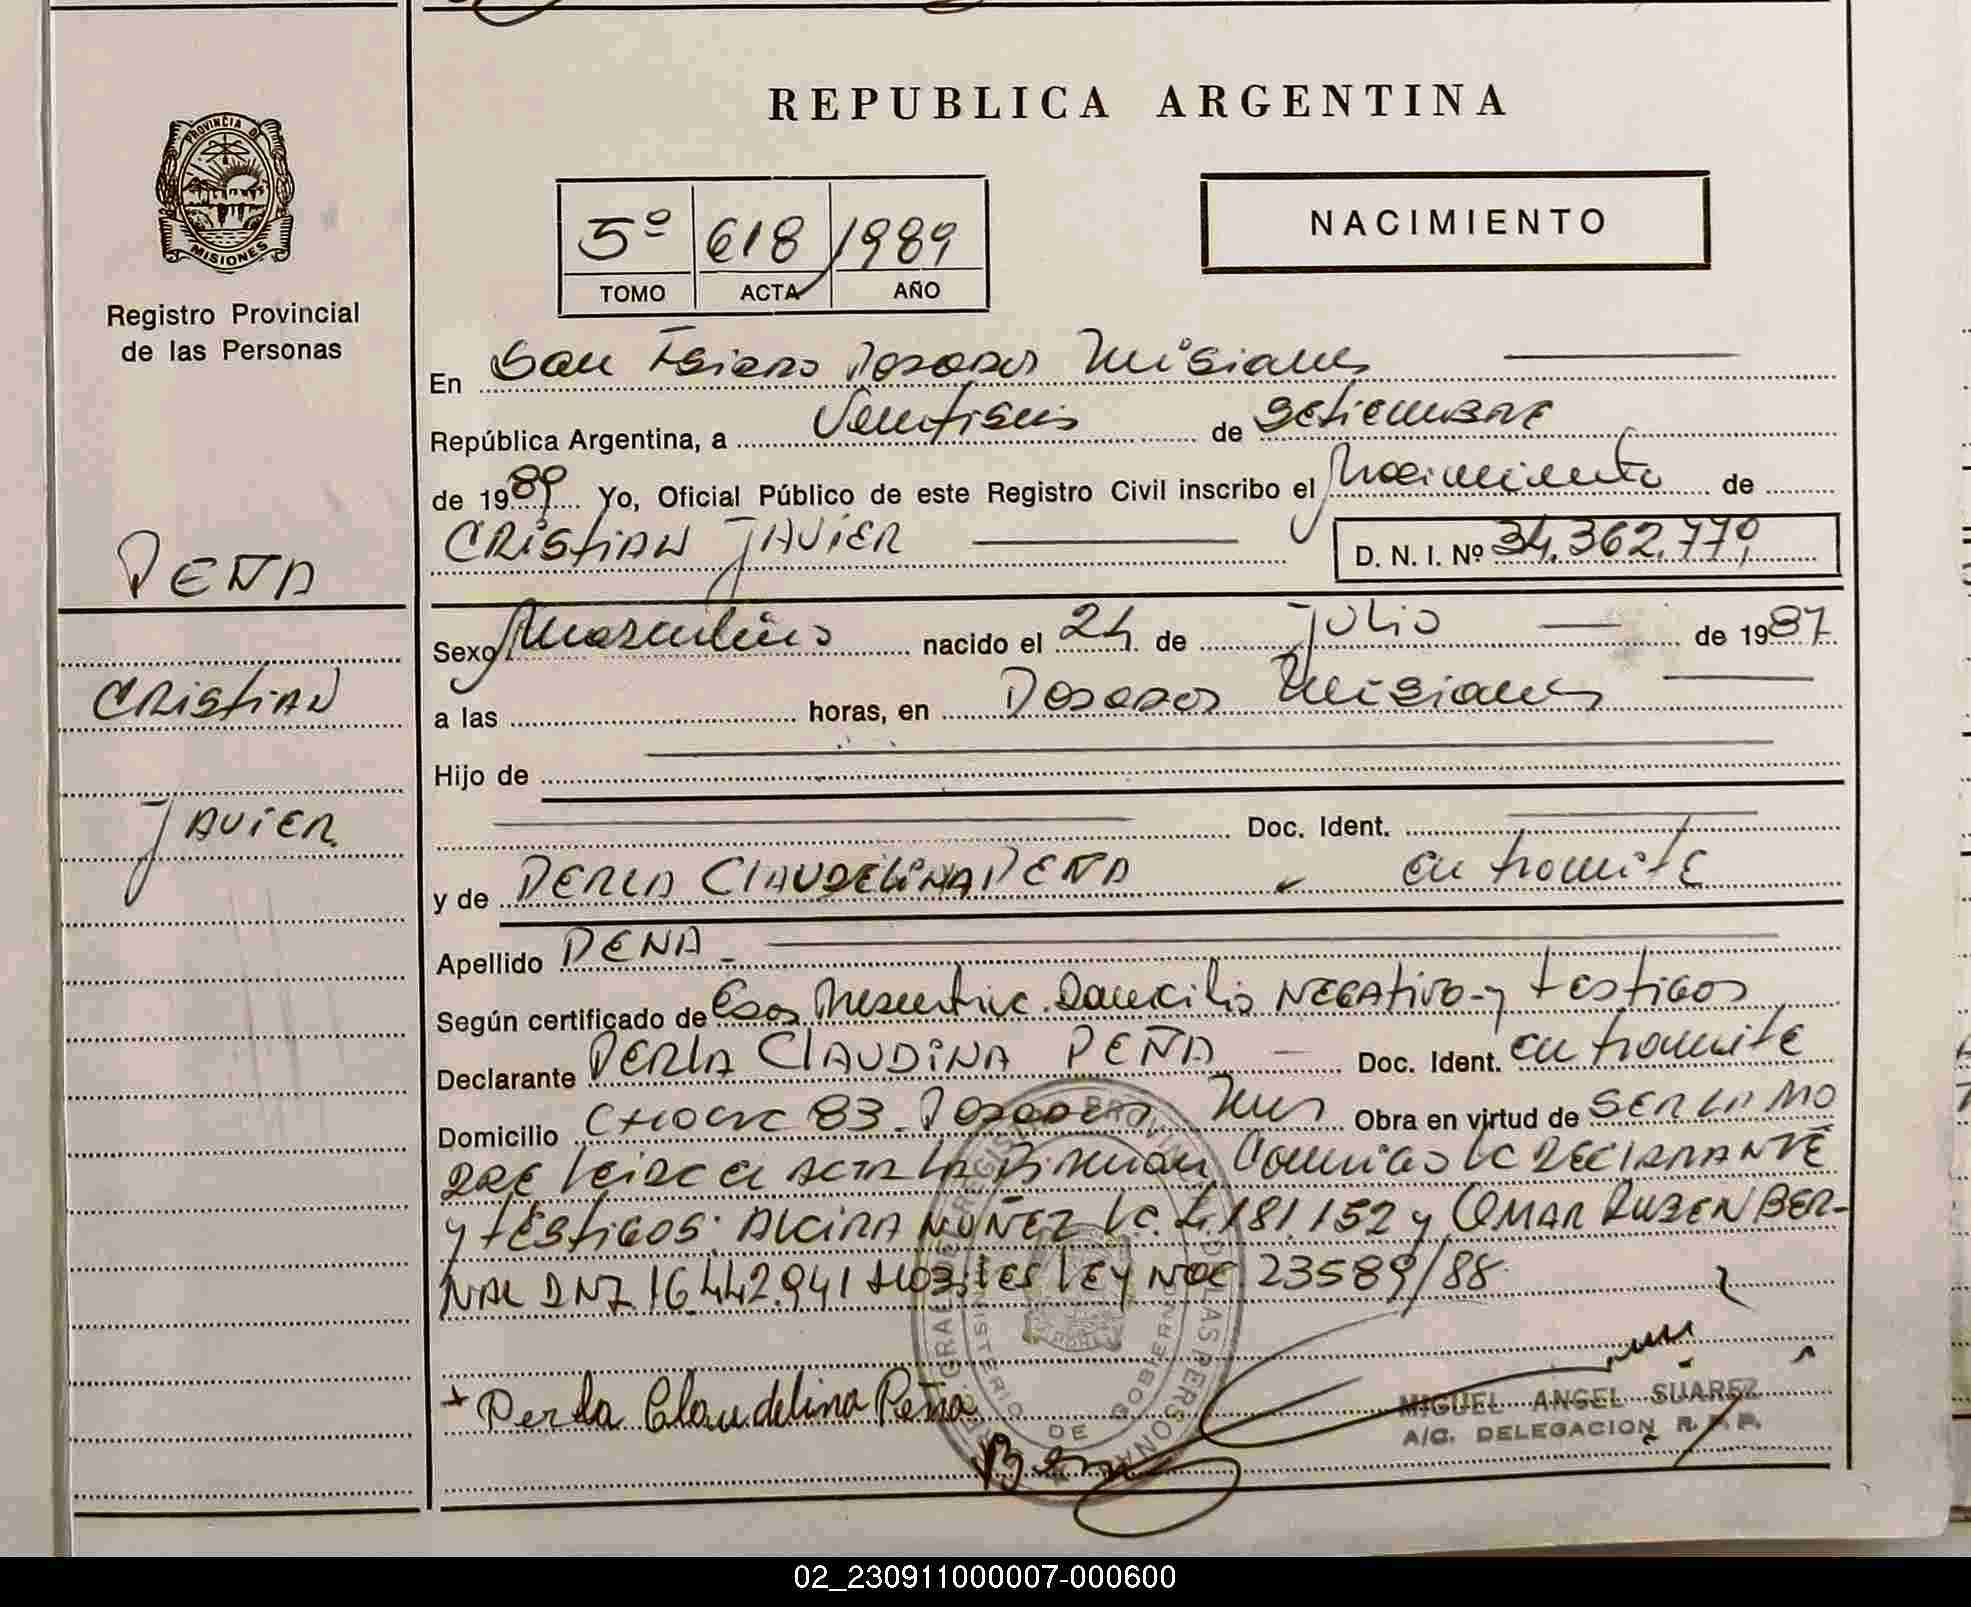 REPUBLICA ARGENTINA
PROVINCIA DE
MISIONES
Registro Provincial
de las Personas
5º 618 1989
TOMO ACTA AÑO
NACIMIENTO
En San Isidro Posadas Misiones
República Argentina, a Veintiseis de setiembre
de 1989 Yo, Oficial Público de este Registro Civil inscribo el Nacimiento de
CRistiAN JAViER
D. N. I. Nº 34.362.779
PEÑA
CRistiAN
JAViER
Sexo Masculino nacido el 24 de Julio de 1987
a las horas, en Posadas Misiones
Hijo de
Doc. Ident.
y de PERLA CLAUDELiNA PEÑA en tramite
Apellido PEÑA
Según certificado de Domicilio NEGAtiVO y testigos
Declarante PERLA CLAUDiNA PEÑA Doc. Ident. en tramite
Domicilio CHacra 83 Posadas Mnes Obra en virtud de SER LA MA
DRE leida el ACTA LA Firman Conmigo la DECLARANTE
y tEStiGOS: ALCiRA NUÑEZ L.C. 181.152 y OMAR RUBEN BER-
NAL DNI 16.442.941 LEY 23589/88
Perla Claudelina Peña
MIGUEL ANGEL SUAREZ
A/C. DELEGACION R. P. P.
MINISTERIO DE GOBIERNO
02_230911000007-000600